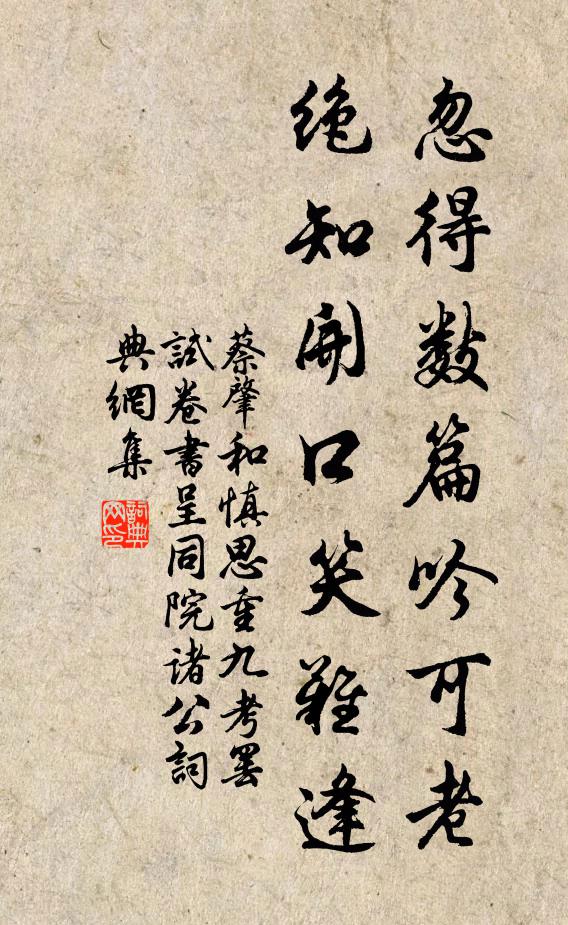 忽得数篇吟可老
绝知开口笑难逢
蔡肇和慎思重九考罢
試卷書呈同院诸公詞
典網集
詞典網印